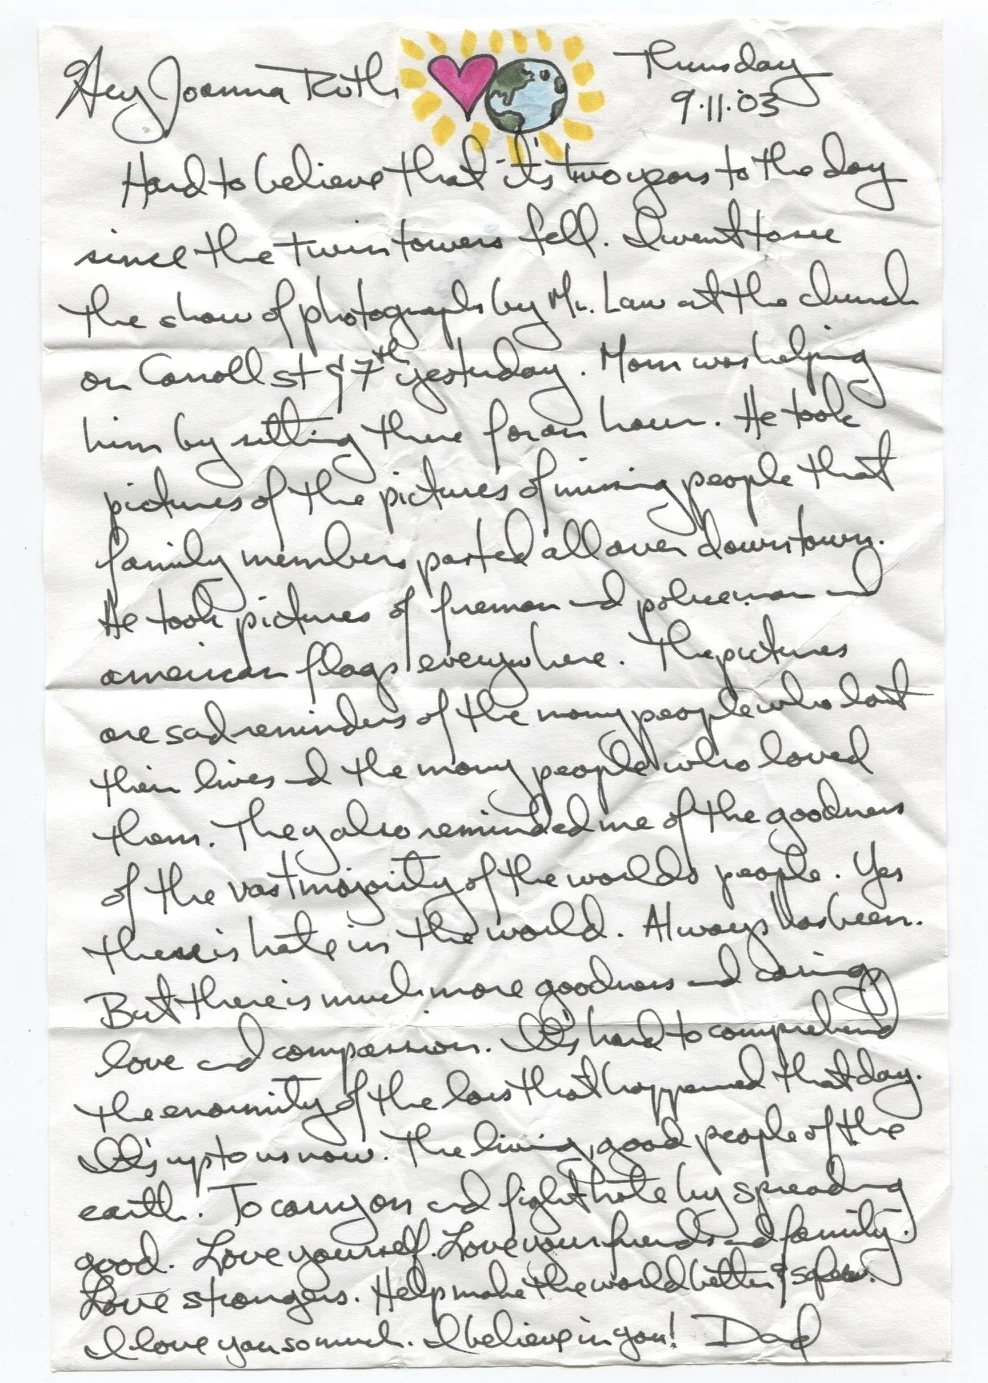 Hey Joanna Ruth Thursday
9.11.03
Hard to believe that it's two years to the day
since the twin towers fell. I went to see
the show of photographs by Mr. Law at the church
on Carroll St & 7th yesterday. Mom was helping
him by sitting there for an hour. He took
pictures of the pictures of missing people that
family members posted all over downtown.
He took pictures of fireman and policeman and
american flags everywhere. The pictures
are sad reminders of the many people who lost
their lives and the many people who loved
them. They also reminded me of the goodness
of the vast majority of the worlds people. Yes
there is hate in the world. Always has been.
But there is much more goodness and caring
love and compassion. It's hard to comprehend
the enormity of the loss that happened that day.
It's up to us now. The living, good people of the
earth. To carry on and fight hate by spreading
good. Love yourself. Love your friends and family.
Love strangers. Help make the world better & safer.
I love you so much. I believe in you! Dad